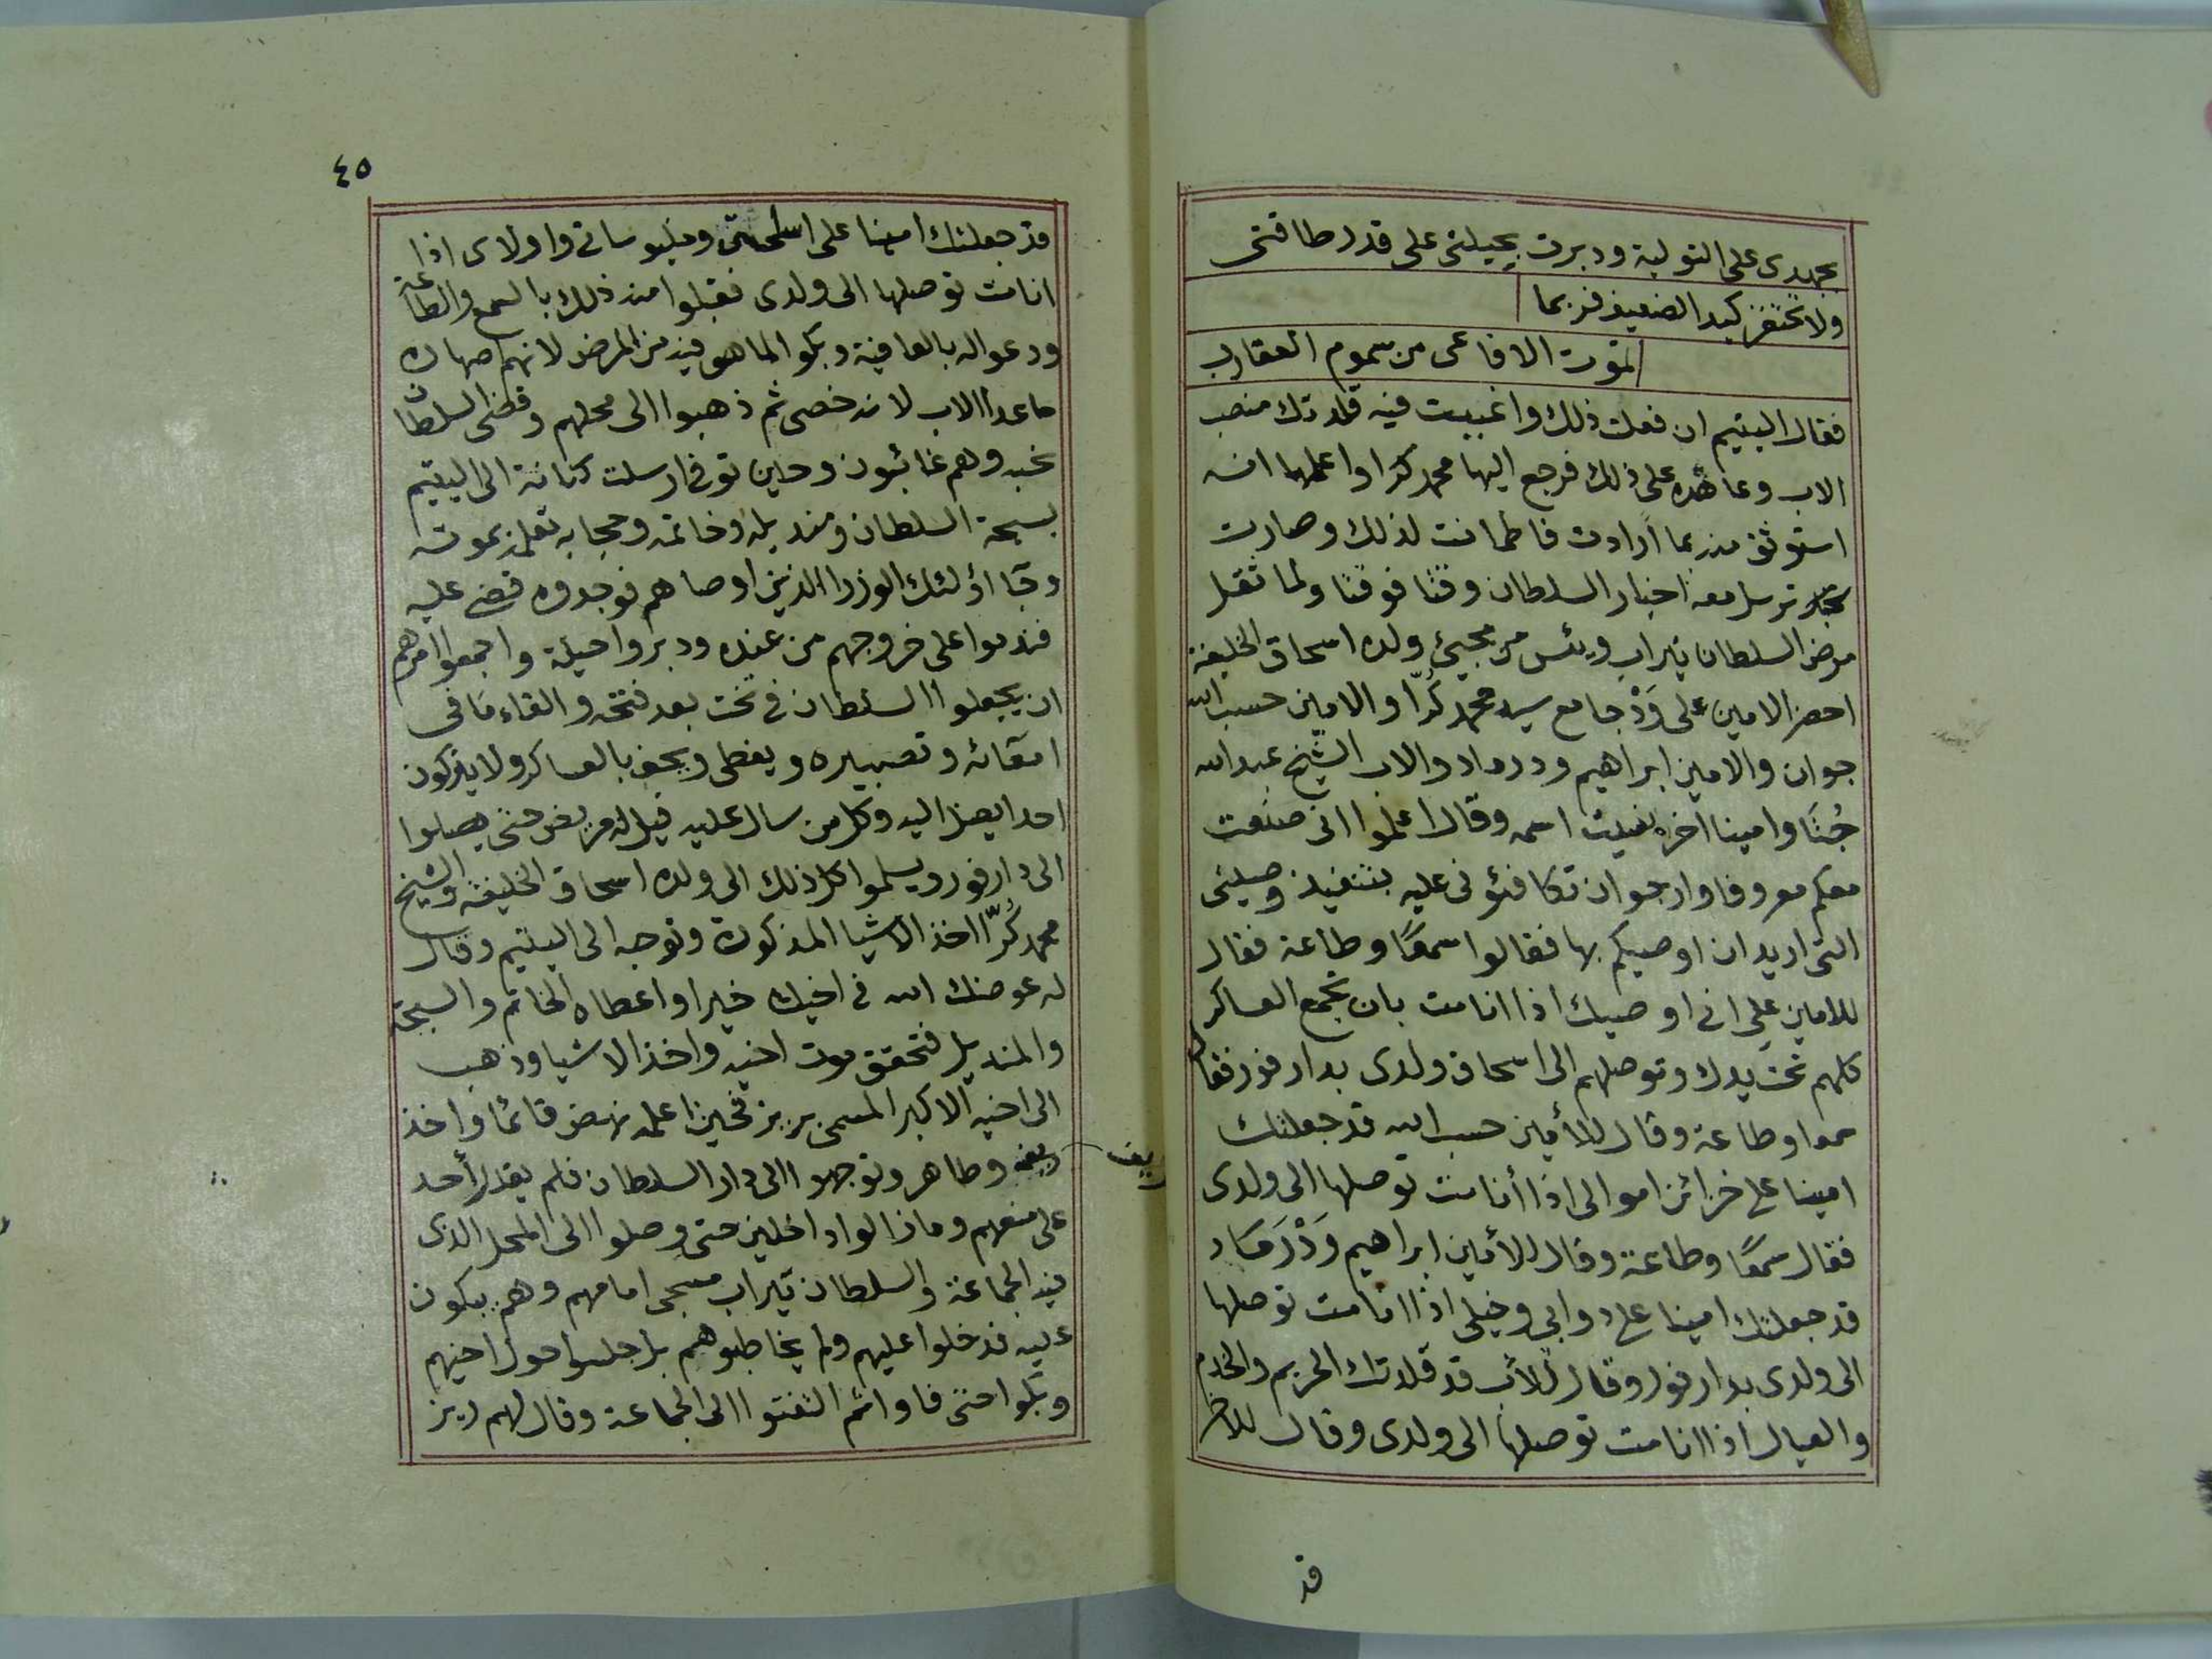 بجهدى على التولية ودبرت بحيلتى على قدر طاقتى
ولا تحتقر كيد الضعيف فربما
تموت الافاعى من سموم العقارب
فقال اليتيم ان فعلت ذلك واغيبت فيه قلدتك منصب
الاب وعاهده على ذلك فرجع اليها محمد كرا واعلمها انه
استوثق منه بما ارادت فاطمانت لذلك وصارت
ترسل معه اخبار السلطان وقتا فوقتا ولما ثقل
مرض السلطان تيراب ويئس من مجيئ ولده اسحاق الخليفة
احضر الامين على وَدْ جامع سيد محمد كُرّا والامين حسب الله
جوان والامين ابراهيم ود رماد والاب الشيخ عبد الله
جُثَا وامينا اخر نسيت اسمه وقال اعلموا انى صنعت
معكم معروفا وارجو ان تكافئونى عليه بتنفيذ وصيتى
التى اريد ان اوصيكم بها فقالوا سمعًا وطاعة فقال
للامين على انى اوصيك اذا انا مت بان تجمع العساكر
كلهم تحت يدك وتوصلهم الى اسحاق ولدى بدارفور فقال
سمعا وطاعة وقال للأمين حسب الله قد جعلتك
امينا على خزائن اموالى اذا أنا مت توصلها الى ولدى
فقال سمعًا وطاعة وقال للأمين ابراهيم وَدْ رَمَاد
قد جعلتك امينا على دوابى وخيلى اذا انا مت توصلها
الى ولدى بدارفور وقال للأب قد قلدتك الحريم والخدم
والعيال اذا انا مت توصلها الى ولدى وقال للاخر
قد
٤٥
قد جعلتك امينا على اسلحتى وملبوساتى واولادى اذا
انا مت توصلها الى ولدى فقبلوا منه ذلك بالسمع والطاعة
ودعوا له بالعافية وبكوا لما هو فيه من المرض لانهم اصهاره
ما عدا الاب لانه خصى ثم ذهبوا الى محلهم وقضى السلطان
نحبه وهم غائبون وحين توفى ارسلت كنانة الى اليتيم
بسبحة السلطان ومنديله وخاتمه وحجابه تعلمه بموته
وجا اؤلئك الوزرا الذين اوصاهم فوجدوه قضى عليه
فندموا على خروجهم من عنده ودبروا حيلة واجمعوا امرهم
ان يجعلوا السلطان فى تخت بعد فتحه والقاء ما فى
امعائه وتصبيره ويغطى ويحف بالعساكر ولا يتركون
احدا يصل اليه وكل من سال عليه قيل له مريض حتى يصلوا
الى دارفور ويسلموا كل ذلك الى ولده اسحاق الخليفة والشيخ
محمد كُرّا اخذ الاشيا المذكورة وتوجه الى اليتيم وقال
له عوضك الله فى اخيك خيرا واعطاه الخاتم والسبحة
والمنديل فتحقق موت اخيه واخذ الاشيا وذهب
الى اخيه الاكبر المسمى ريز فحين اعلمه نهض قائما واخذ
ريفه وطاهر وتوجهوا الى دار السلطان فلم يقدر أحد
ريف
على منعهم ومازالوا داخلين حتى وصلوا الى المحل الذى
فيه الجماعة والسلطان تيراب مسجى امامهم وهم يبكون
عليه فدخلوا عليهم ولم يخاطبوهم بل جلسوا حول اخيهم
وبكوا حتى فاوا ثم التفتوا الى الجماعة وقال لهم ريز